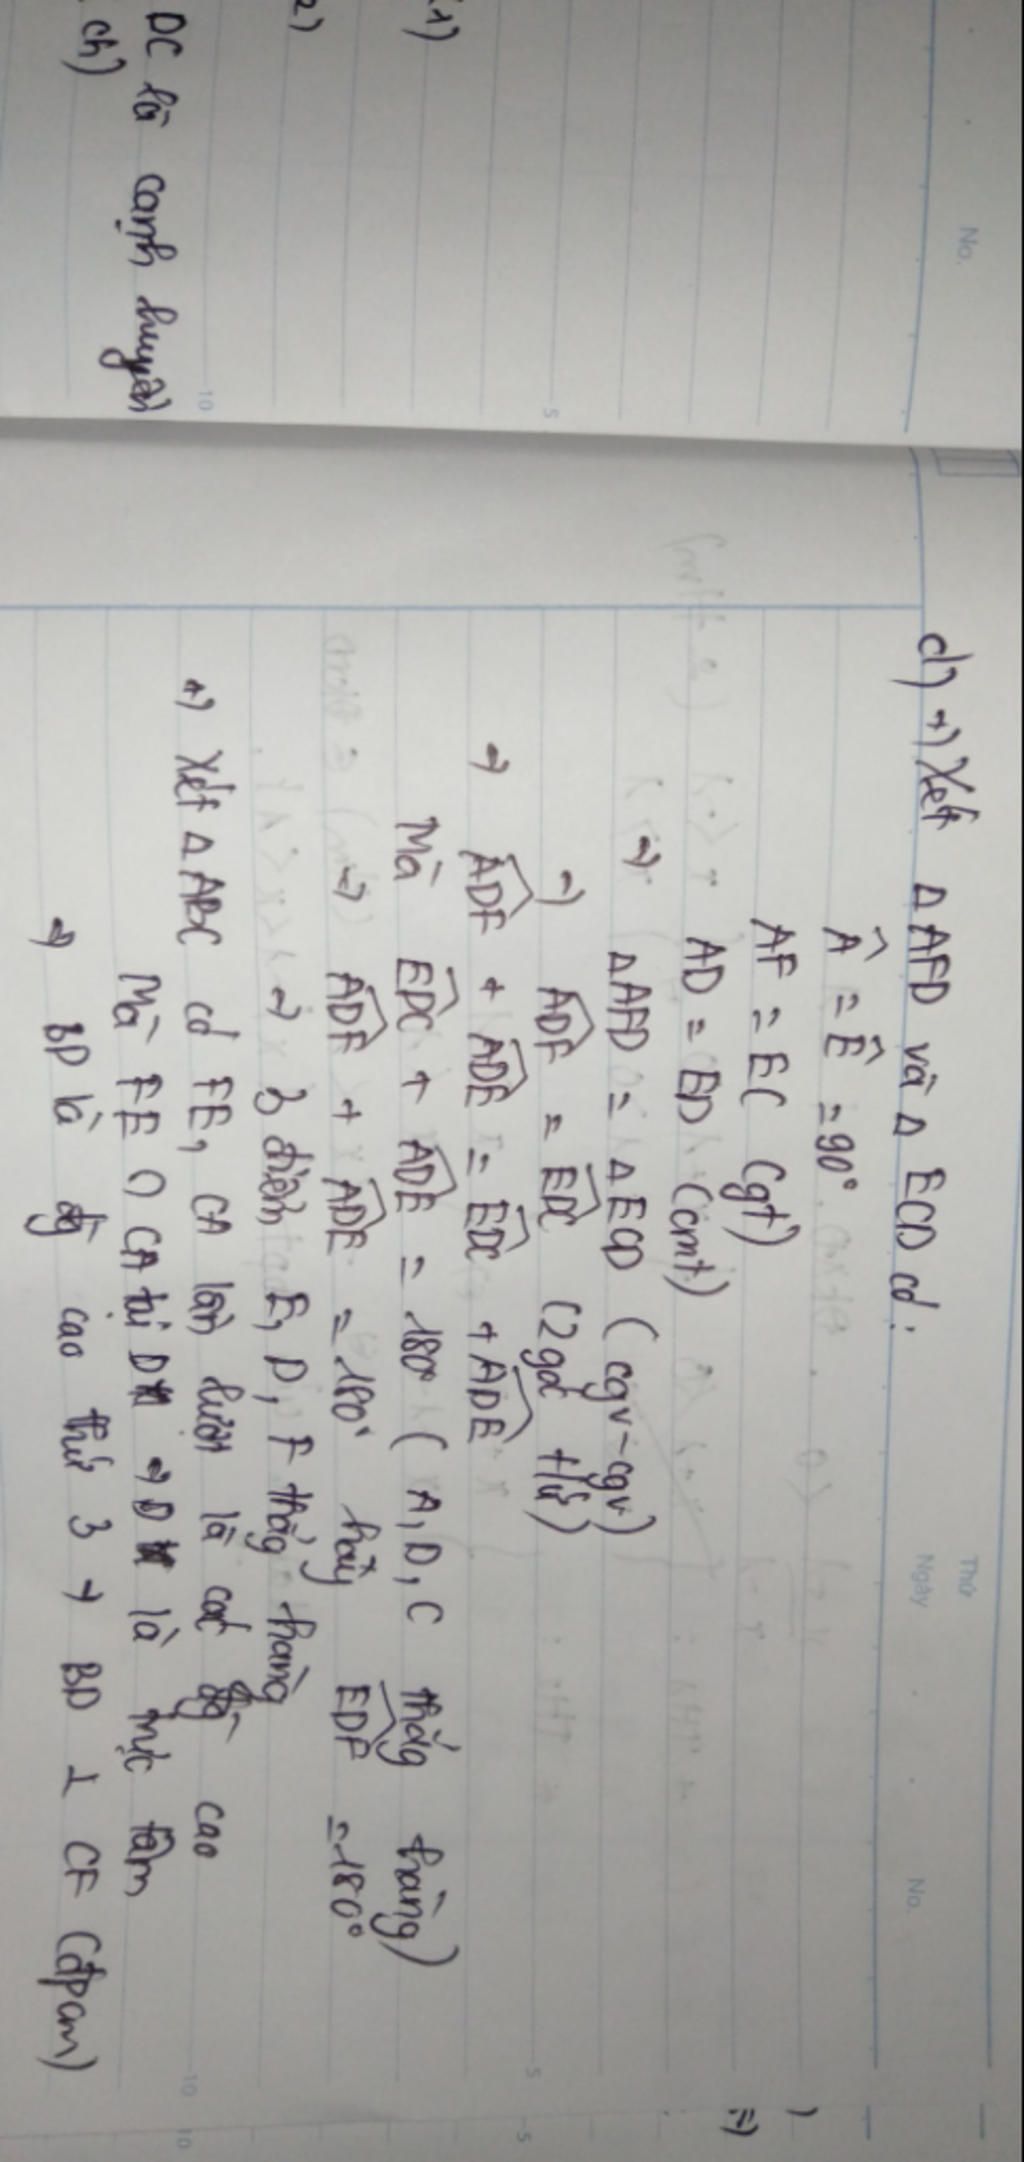 No.
DC là cạnh huyền
ch)
Thứ
Ngày
No.
d) +) Xét Δ AFD và Δ ECD có:
Â = Ê = 90°
AF = EC (gt)
AD = ED (cmt)
⇒ Δ AFD = Δ ECD (cgv-cgv)
⇒ ADF = EDC (2 góc t/ứ)
⇒ ADF + ADE = EDC + ADE
Mà EDC + ADE = 180° (A, D, C thẳg hàng)
⇒ ADF + ADE = 180° hay EDF = 180°
⇒ 3 điểm E, D, F thẳg hàng
+) Xét Δ ABC có FE, CA lần lượt là các đg cao
Mà FE ∩ CA tại D ⇒ D là trực tâm
⇒ BD là đg cao thứ 3 → BD ⊥ CF (đpcm)